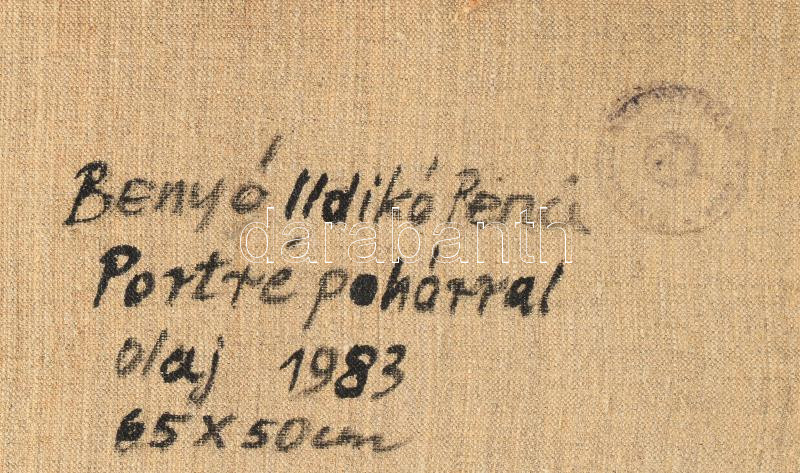 Benyó Ildikó
Portre pohárral
olaj 1983
65 X 50 cm
darabanth